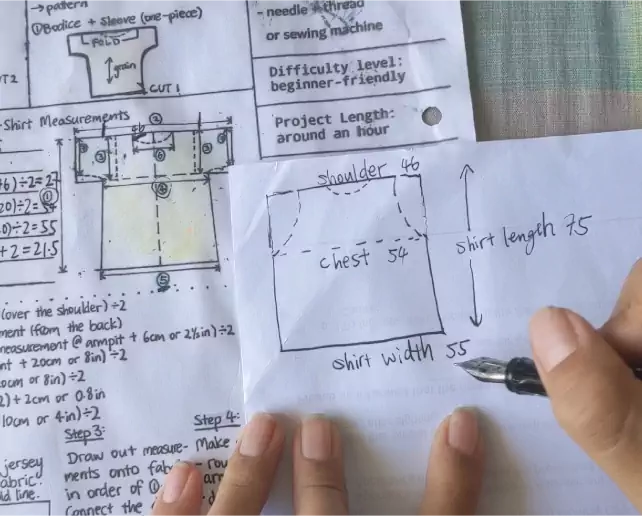 →pattern
①Bodice + Sleeve (one-piece)
FOLD
grain
CUT 1
- needle + thread
or sewing machine
Difficulty level:
beginner-friendly
Project Length:
around an hour
-Shirt Measurements
+6)÷2=27
20)÷2=54
0)÷2=55
+2=21.5
(over the shoulder)÷2
ment (from the back)
measurement @ armpit + 6cm or 2½in)÷2
nt + 20cm or 8in)÷2
0cm or 8in)÷2
2)+2cm or 0.8in
10cm or 4in)÷2
Step 3:
Draw out measure-
ments onto
in order of ①
Connect the
Step 4:
Make
jersey
abric
ld line.
shoulder 46
chest 54
shirt length 75
shirt width 55